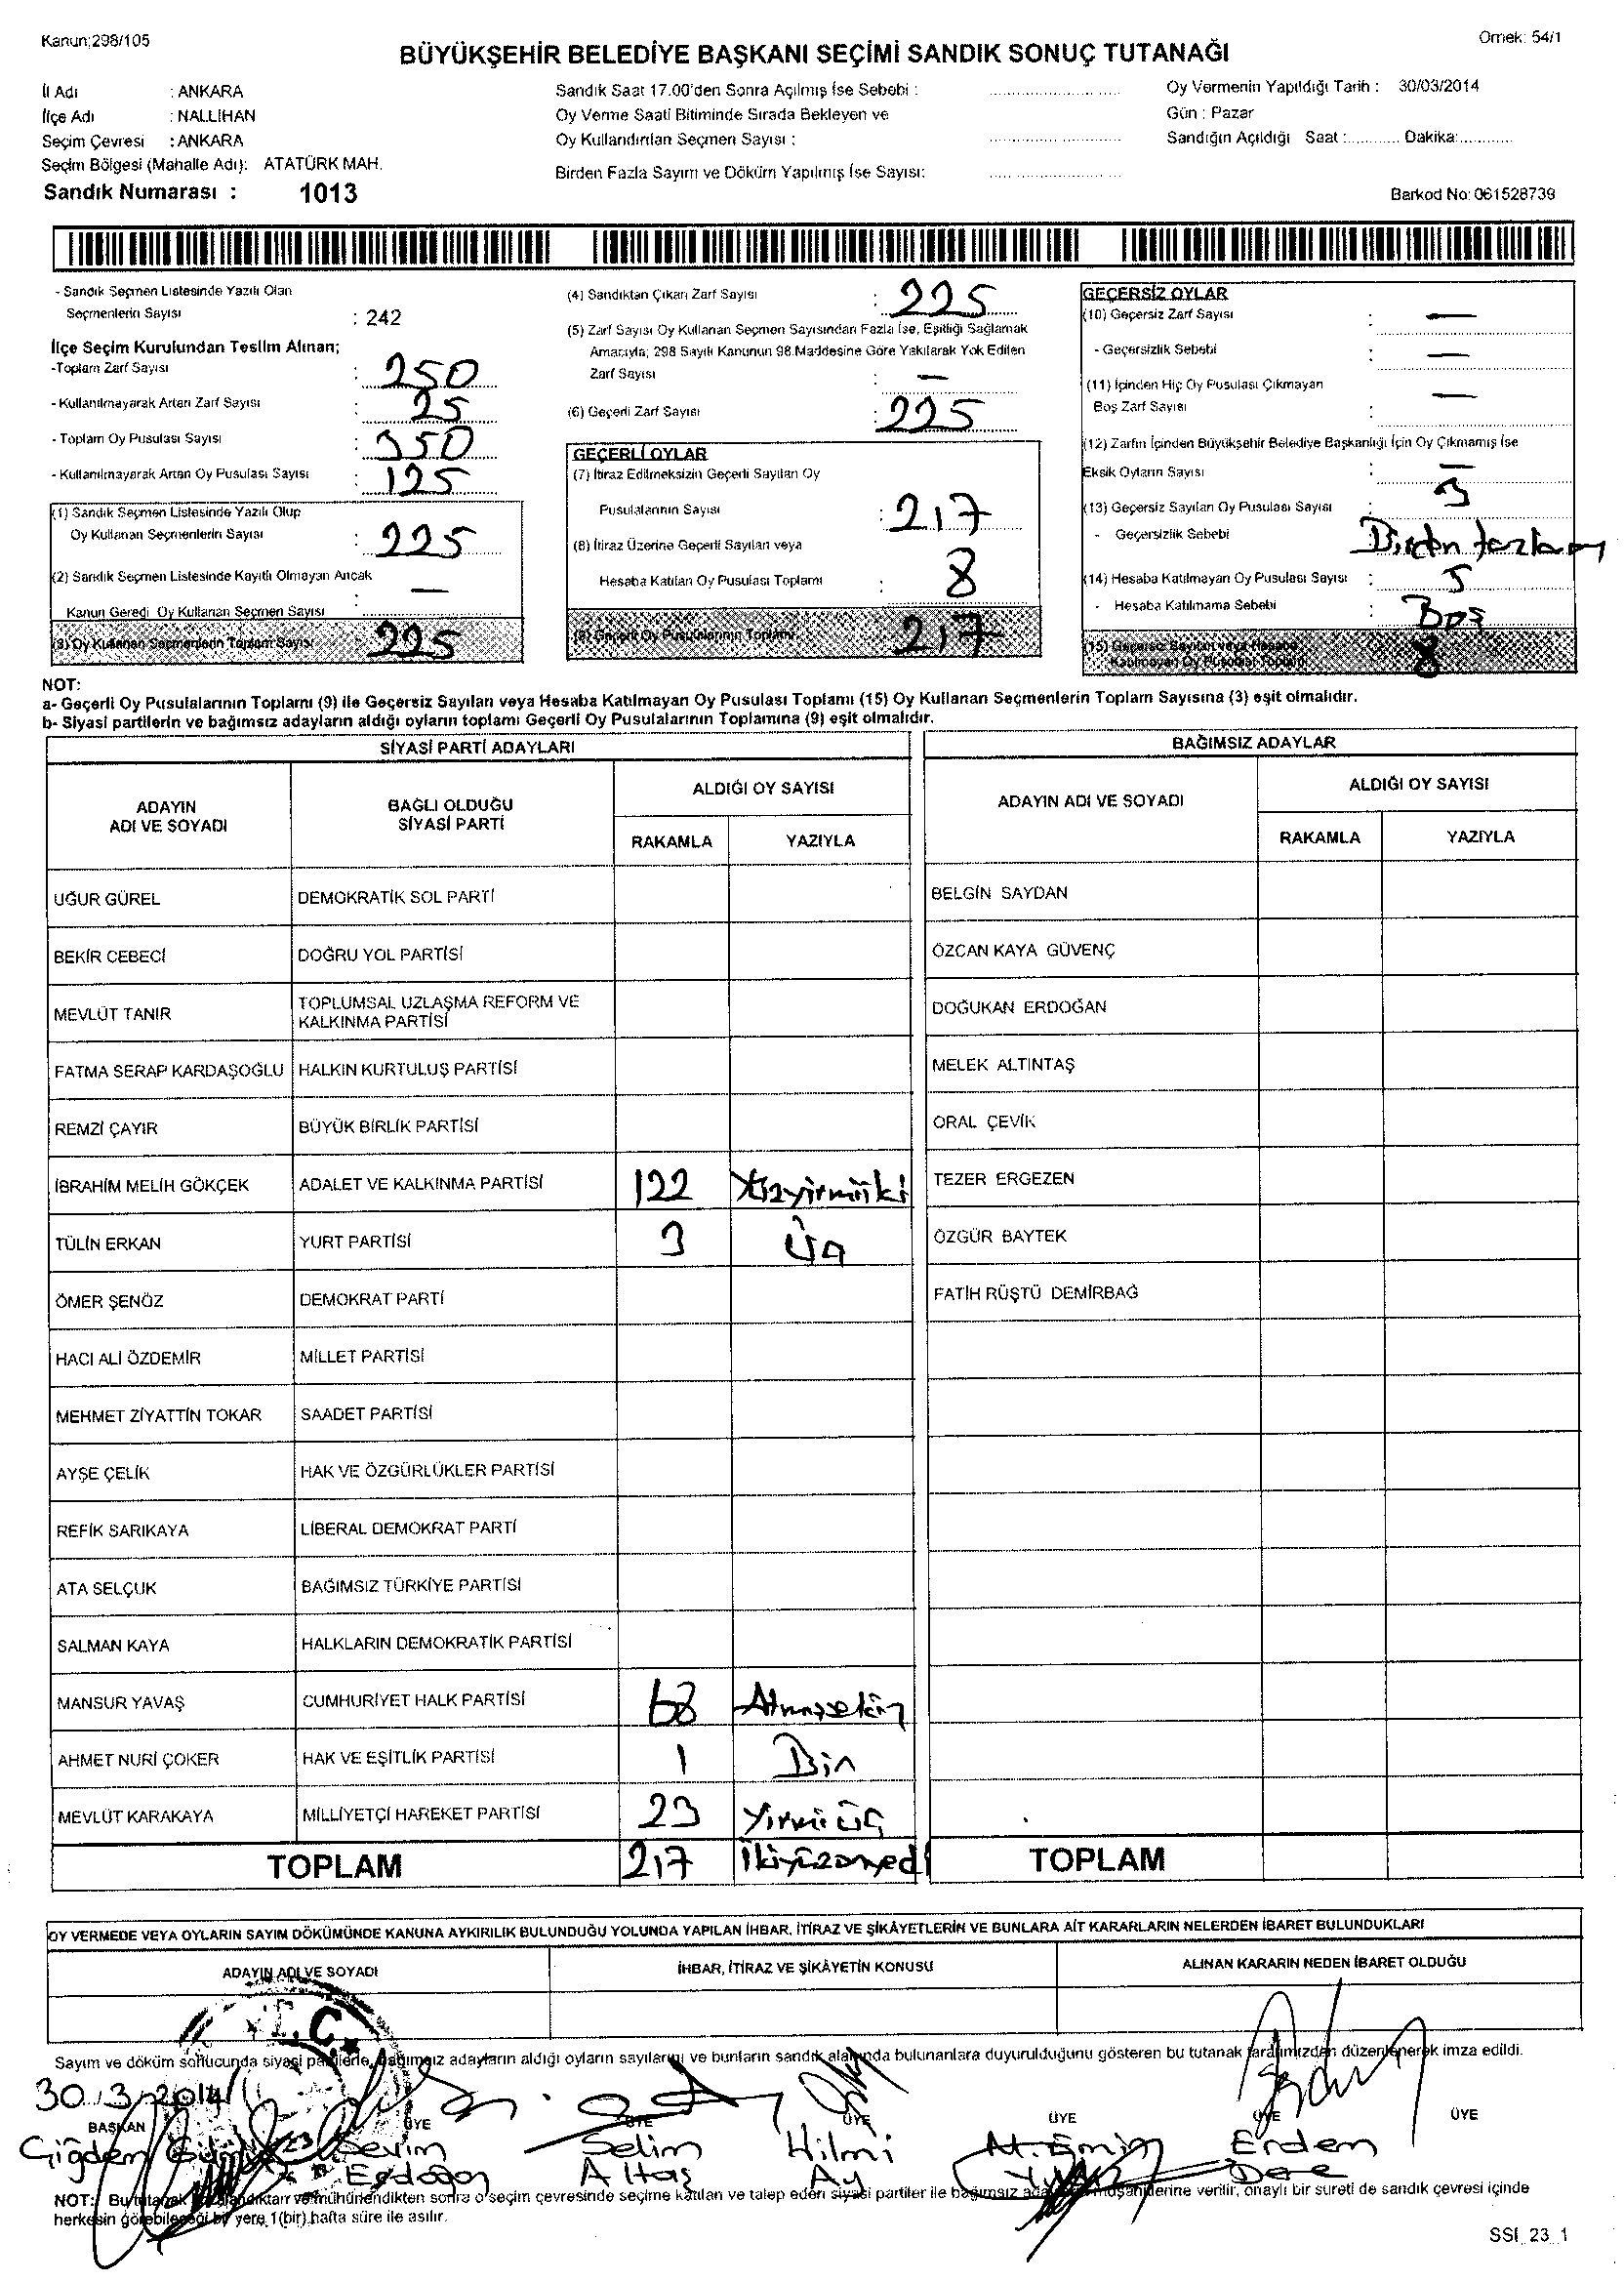 Kanun;298/105
Örnek: 54/1
BÜYÜKŞEHİR BELEDİYE BAŞKANI SEÇİMİ SANDIK SONUÇ TUTANAĞI
İl Adı : ANKARA
İlçe Adı : NALLIHAN
Seçim Çevresi : ANKARA
Seçim Bölgesi (Mahalle Adı): ATATÜRK MAH.
Sandık Numarası : 1013
Sandık Saat 17.00'den Sonra Açılmış İse Sebebi :
Oy Verme Saati Bitiminde Sırada Bekleyen ve
Oy Kullandırılan Seçmen Sayısı :
Birden Fazla Sayım ve Döküm Yapılmış İse Sayısı:
Oy Vermenin Yapıldığı Tarih : 30/03/2014
Gün : Pazar
Sandığın Açıldığı Saat :............ Dakika:............
Barkod No: 061528739
- Sandık Seçmen Listesinde Yazılı Olan
Seçmenlerin Sayısı : 242
İlçe Seçim Kurulundan Teslim Alınan;
-Toplam Zarf Sayısı : 250
- Kullanılmayarak Artan Zarf Sayısı : 25
- Toplam Oy Pusulası Sayısı : 350
- Kullanılmayarak Artan Oy Pusulası Sayısı : 125
(1) Sandık Seçmen Listesinde Yazılı Olup
Oy Kullanan Seçmenlerin Sayısı : 225
(2) Sandık Seçmen Listesinde Kayıtlı Olmayan Ancak
Kanun Geredi Oy Kullanan Seçmen Sayısı : —
(3) Oy Kullanan Seçmenlerin Toplam Sayısı 225
(4) Sandıktan Çıkan Zarf Sayısı : 225
(5) Zarf Sayısı Oy Kullanan Seçmen Sayısından Fazla İse, Eşitliği Sağlamak
Amacıyla; 298 Sayılı Kanunun 98.Maddesine Göre Yakılarak Yok Edilen
Zarf Sayısı : —
(6) Geçerli Zarf Sayısı : 225
GEÇERLİ OYLAR
(7) İtiraz Edilmeksizin Geçerli Sayılan Oy
Pusulalarının Sayısı : 217
(8) İtiraz Üzerine Geçerli Sayılan veya
Hesaba Katılan Oy Pusulası Toplamı : 8
(9) Geçerli Oy Pusulalarının Toplamı 217
GEÇERSİZ OYLAR
(10) Geçersiz Zarf Sayısı : —
- Geçersizlik Sebebi : —
(11) İçinden Hiç Oy Pusulası Çıkmayan
Boş Zarf Sayısı : —
(12) Zarfın İçinden Büyükşehir Belediye Başkanlığı İçin Oy Çıkmamış İse
Eksik Oyların Sayısı : —
(13) Geçersiz Sayılan Oy Pusulası Sayısı 3
- Geçersizlik Sebebi
(14) Hesaba Katılmayan Oy Pusulası Sayısı : 5
- Hesaba Katılmama Sebebi : Boş
(15) Geçersiz Sayılan veya Hesaba
Katılmayan Oy Pusulası Toplamı 8
NOT:
a- Geçerli Oy Pusulalarının Toplamı (9) ile Geçersiz Sayılan veya Hesaba Katılmayan Oy Pusulası Toplamı (15) Oy Kullanan Seçmenlerin Toplam Sayısına (3) eşit olmalıdır.
b- Siyasi partilerin ve bağımsız adayların aldığı oyların toplamı Geçerli Oy Pusulalarının Toplamına (9) eşit olmalıdır.
SİYASİ PARTİ ADAYLARI
ADAYIN ADI VE SOYADI BAĞLI OLDUĞU SİYASİ PARTİ ALDIĞI OY SAYISI
RAKAMLA YAZIYLA
UĞUR GÜREL DEMOKRATİK SOL PARTİ
BEKİR CEBECİ DOĞRU YOL PARTİSİ
MEVLÜT TANIR TOPLUMSAL UZLAŞMA REFORM VE KALKINMA PARTİSİ
FATMA SERAP KARDAŞOĞLU HALKIN KURTULUŞ PARTİSİ
REMZİ ÇAYIR BÜYÜK BİRLİK PARTİSİ
İBRAHİM MELİH GÖKÇEK ADALET VE KALKINMA PARTİSİ 122
TÜLİN ERKAN YURT PARTİSİ 3 Üç
ÖMER ŞENÖZ DEMOKRAT PARTİ
HACI ALİ ÖZDEMİR MİLLET PARTİSİ
MEHMET ZİYATTİN TOKAR SAADET PARTİSİ
AYŞE ÇELİK HAK VE ÖZGÜRLÜKLER PARTİSİ
REFİK SARIKAYA LİBERAL DEMOKRAT PARTİ
ATA SELÇUK BAĞIMSIZ TÜRKİYE PARTİSİ
SALMAN KAYA HALKLARIN DEMOKRATİK PARTİSİ
MANSUR YAVAŞ CUMHURİYET HALK PARTİSİ 68
AHMET NURİ ÇOKER HAK VE EŞİTLİK PARTİSİ 1 Bir
MEVLÜT KARAKAYA MİLLİYETÇİ HAREKET PARTİSİ 23 Yirmi üç
TOPLAM 217 İkiyüzonyedi
BAĞIMSIZ ADAYLAR
ADAYIN ADI VE SOYADI ALDIĞI OY SAYISI
RAKAMLA YAZIYLA
BELGİN SAYDAN
ÖZCAN KAYA GÜVENÇ
DOĞUKAN ERDOĞAN
MELEK ALTINTAŞ
ORAL ÇEVİK
TEZER ERGEZEN
ÖZGÜR BAYTEK
FATİH RÜŞTÜ DEMİRBAĞ
TOPLAM
OY VERMEDE VEYA OYLARIN SAYIM DÖKÜMÜNDE KANUNA AYKIRILIK BULUNDUĞU YOLUNDA YAPILAN İHBAR, İTİRAZ VE ŞİKÂYETLERİN VE BUNLARA AİT KARARLARIN NELERDEN İBARET BULUNDUKLARI
ADAYIN ADI VE SOYADI İHBAR, İTİRAZ VE ŞİKÂYETİN KONUSU ALINAN KARARIN NEDEN İBARET OLDUĞU
T.C.
Sayım ve döküm sonucunda siyasi partilerle, bağımsız adayların aldığı oyların sayılarını ve bunların sandık alanında bulunanlara duyurulduğunu gösteren bu tutanak tarafımızdan düzenlenerek imza edildi.
30.3.2014
BAŞKAN ÜYE ÜYE ÜYE ÜYE ÜYE ÜYE
Çiğdem Sevim Selim Hilmi M. Emin Erdem
Erdoğan Altaş Ay Dere
NOT: Bu tutanak imzalandıktan ve mühürlendikten sonra o seçim çevresinde seçime katılan ve talep eden siyasi partiler ile bağımsız aday müşahitlerine verilir, onaylı bir sureti de sandık çevresi içinde
herkesin görebileceği bir yere 1(bir) hafta süre ile asılır.
SSI_23_1